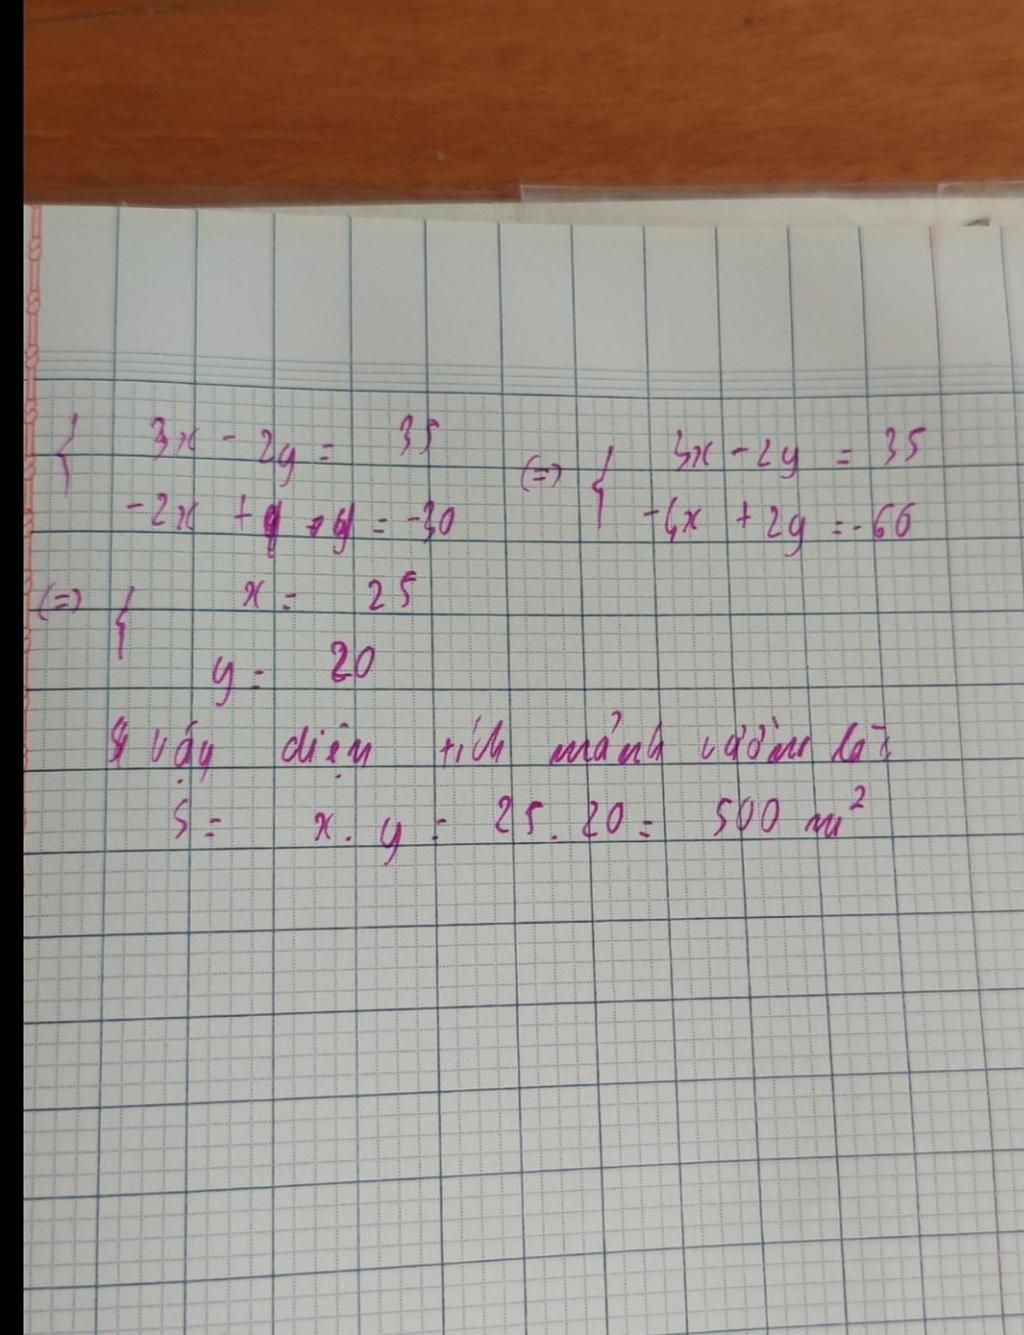 { 3x - 2y = 35 (=) { 3x - 2y = 35
-2x + y = -30 -4x + 2y = -60
(=) { x = 25
y = 20
vậy diện tích mảnh vườn là:
S = x. y = 25. 20 = 500 m²